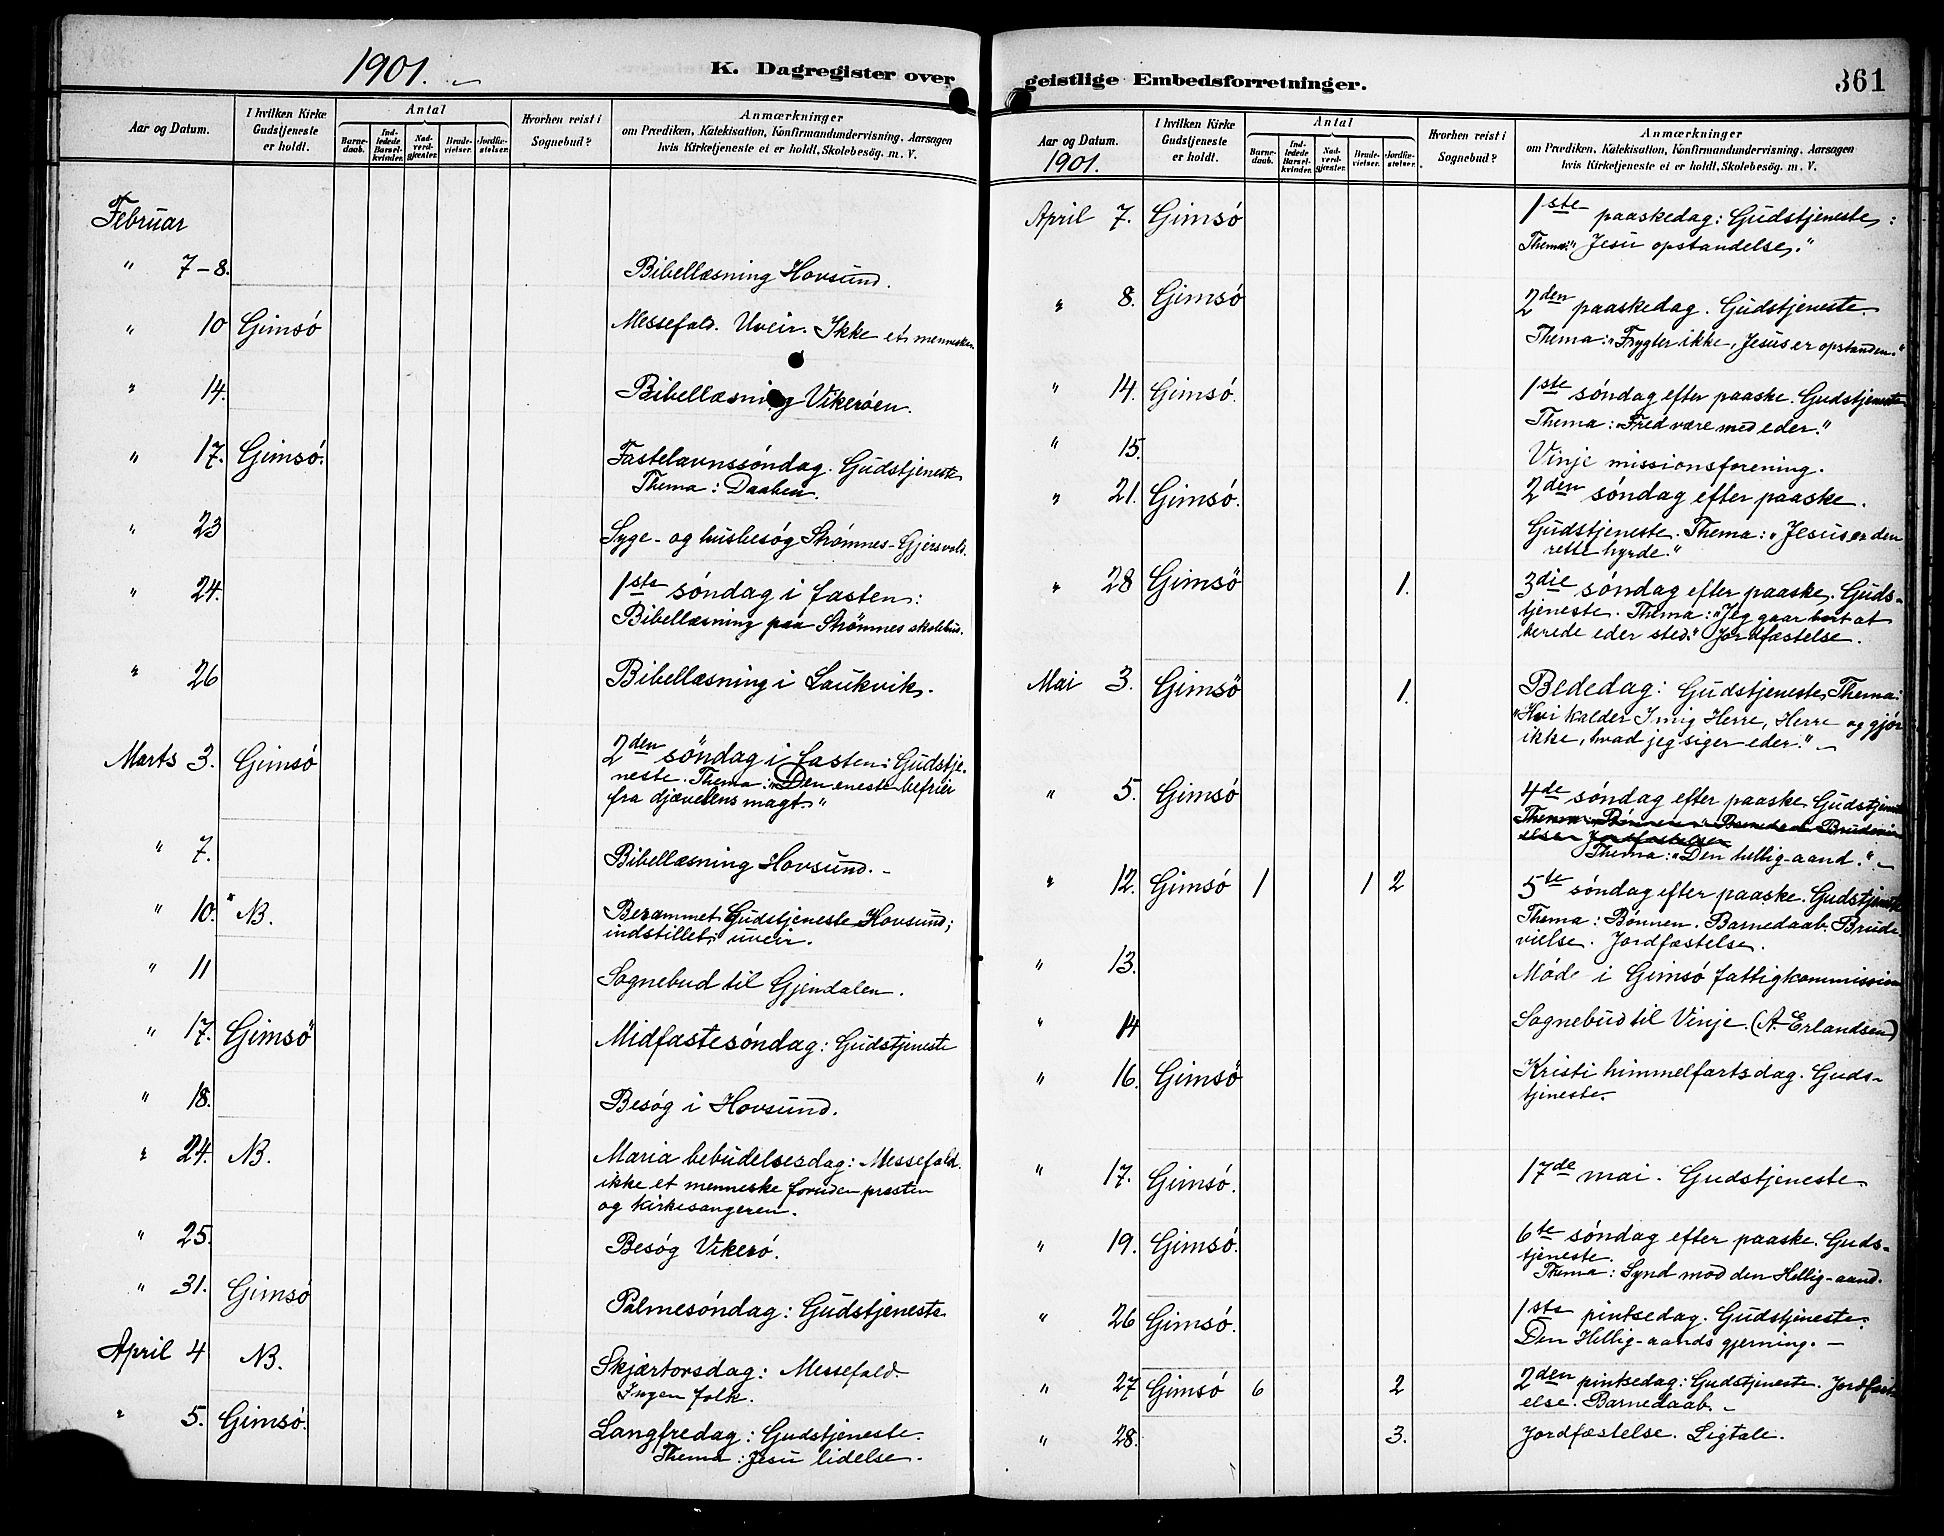 1901.
K. Dagregister over
Aar og Datum.
I hvilken Kirke Gudstjeneste er holdt.
Antal
Barnedaab.
Indledede Barselkvinder.
Nadverdgjester.
Brudevielser.
Jordfæstelser.
Hvorhen reist i Sognebud?
Anmærkninger
om Prædiken, Katekisation, Konfirmandundervisning, Aarsagen
hvis Kirketjeneste ei er holdt, Skolebesøg. m. V.
Februar
" 7-8. Bibellæsning Hovsund.
" 10 Gimsö Messefald. Uveir. Ikke et menneske.
" 14. Bibellæsning Vikerøen.
" 17. Gimsö. Fastelavnssöndag. Gudstjeneste
Thema: Daaben.
" 23 Syge- og husbesög Strømnes-Gjersvold.
" 24. 1ste söndag i fasten:
Bibellæsning paa Strømnes skolehus.
" 26 Bibellæsning i Laukvik.
Marts 3. Gimsö 2den söndag i fasten: Gudstje-
neste. Thema: "Den eneste befrier
fra djævelens magt."
" 7. Bibellæsning Hovsund. -
" 10. " NB. Berammet Gudstjeneste Hovsund;
indstillet; uveir.
" 11 Sognebud til Gjendalen.
" 17. Gimsö Midfastesöndag: Gudstjeneste
" 18. Besög i Hovsund.
" 24. NB. Maria bebudelsesdag: Messefald.
ikke et menneske foruden præsten
og kirkesangeren.
" 25. Besög Vikerö.
" 31. Gimsö Palmesöndag: Gudstjeneste
April 4 NB. Skjærtorsdag: Messefald
Ingen folk.
" 5. Gimsö. Langfredag: Gudstjeneste.
Thema: Jesu lidelse.
geistlige Embedsforretninger.
361
Aar og Datum.
1901.
I hvilken Kirke Gudstjeneste er holdt.
Antal
Barnedaab.
Indledede Barselkvinder.
Nadverdgjester.
Brudevielser.
Jordfæstelser.
Hvorhen reist i Sognebud?
Anmærkninger
om Prædiken, Katekisation, Konfirmandundervisning, Aarsagen
hvis Kirketjeneste ei er holdt, Skolebesøg. m. V.
April 7. Gimsö 1ste paaskedag: Gudstjeneste:
Thema: "Jesu opstandelse."
" 8. Gimsö 2den paaskedag. Gudstjeneste.
Thema: "Frygter ikke, Jesus er opstanden."
" 14. Gimsö. 1ste söndag efter paaske. Gudstjeneste
Thema: "Fred være med eder."
" 15. Vinje missionsforening.
" 21. Gimsö. 2den söndag efter paaske.
Gudstjeneste. Thema: "Jesus er den
rette hyrde."
" 28 Gimsö 1. 3die söndag efter paaske. Guds-
tjeneste. Thema: "Jeg gaar bort at
berede eder sted." Jordfæstelse.
Mai 3. Gimsö 1. Bededag: Gudstjeneste, Thema:
"Hvi kalder I mig Herre, Herre og gjør
ikke, hvad jeg siger eder." -
" 5. Gimsö 4de söndag efter paaske Gudstjeneste
Thema: "Den hellig-aand." -
" 12. Gimsö 1 1 2 5te söndag efter paaske. Gudstjeneste
Thema: Bønnen. Barnedaab. Brude-
vielse. Jordfæstelse.
" 13. Møde i Gimsö fattigkommission
" 14 Sognebud til Vinje. (A. Erlandsen)
" 16. Gimsö Kristi himmelfartsdag. Guds-
tjeneste.
" 17. Gimsö. 17de mai. Gudstjeneste
" 19. Gimsö. 6te söndag efter paaske. Guds-
tjeneste.
Thema: Synd mod den Hellig-aand.
" 26 Gimsö. 1ste pintsedag. Gudstjeneste.
Den Hellig-aands gjerning. -
" 27 Gimsö 6 2 2den pintsedag: Gudstjeneste. Jordfæst-
else. Barnedaab. -
" 28. 3. Jordfæstelse. Ligtale.